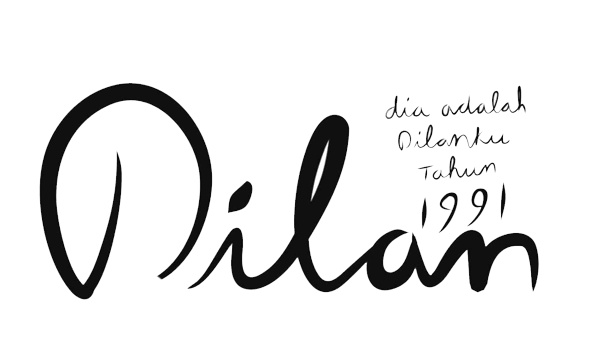 Dilan
dia adalah
Dilanku
Tahun
1991